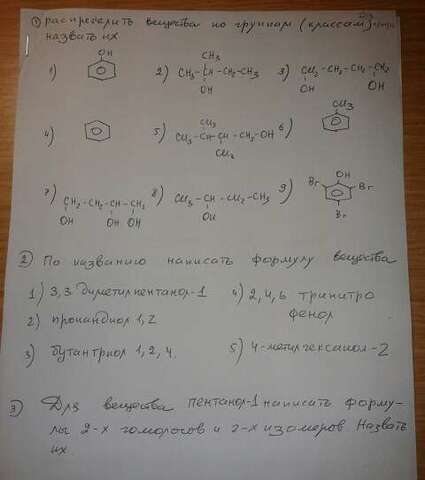 ① распределить вещества по группам (классам)
назвать их
1) OH
2) CH₃
CH₃-CH-CH₂-CH₃
OH
3) CH₂-CH₂-CH₂-CH₂
OH OH
4)
5) CH₃
CH₃-CH-CH-CH₂-OH
CH₃
6) CH₃
7) CH₂-CH₂-CH-CH₂
OH OH OH
8) CH₃-CH-CH₂-CH₃
OH
9) OH
Br Br
Br
② По названию написать формулу вещества
1) 3,3 диметилпентанол-1
2) пропандиол 1,2
3) бутантриол 1,2,4.
4) 2,4,6 тринитро
фенол
5) 4-метилгексанол-2
③ Для вещества пентанол-1 написать форму-
лы 2-х гомологов и 2-х изомеров. Назвать
их.